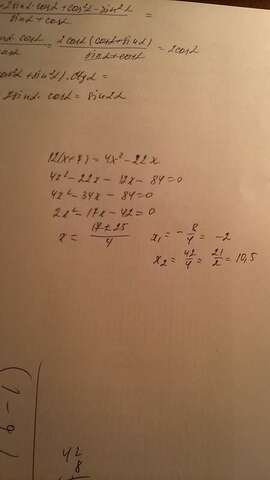 2sinα·cosα+cos²α-sin²α =
sinα+cosα
= 2cosα(cosα+sinα) = 2cosα
sinα+cosα
+sin²α)·ctgα =
2sinα·cosα = sin2α
12(x+7) = 4x²-22x
4x²-22x-12x-84=0
4x²-34x-84=0
2x²-17x-42=0
x = 17±25 / 4 x₁ = -8/4 = -2
x₂ = 42/4 = 21/2 = 10,5
42
8